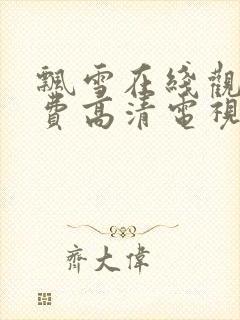 飄雪在綫觀
費高清電視
齊大偉